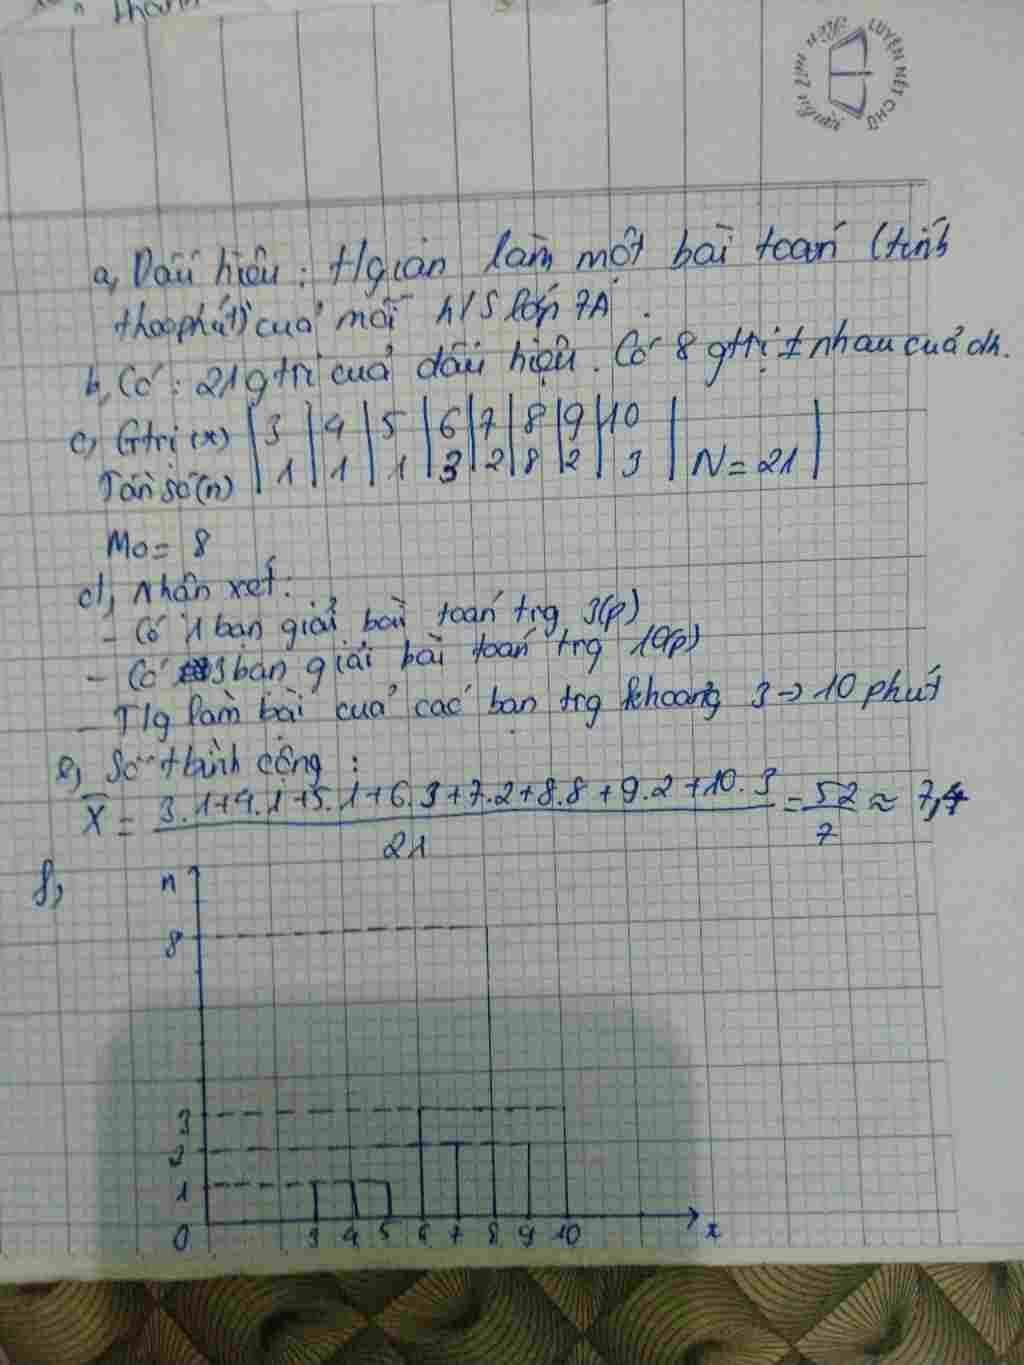 Thanh
LUYỆN NÉT CHỮ
a, Dấu hiệu: t/gian làm một bài toán (tính
theo phút) của mỗi h/s lớp 7A.
b, Có: 21 gtrị của dấu hiệu. Có 8 gtrị ≠ nhau của dh.
c, Gtrị (x) | 3 | 4 | 5 | 6 | 7 | 8 | 9 | 10 |
Tần số (n) | 1 | 1 | 1 | 3 | 2 | 8 | 2 | 3 | N = 21 |
Mo = 8
d, Nhận xét:
- Có 1 bạn giải bài toán trg 3(p)
- Có 3 bạn giải bài toán trg 10(p)
- T/g làm bài của các bạn trg khoảng 3 → 10 phút
e, Số tbình cộng:
X̄ = 3.1+4.1+5.1+6.3+7.2+8.8+9.2+10.3 = 52 ≈ 7,4
21 7
f,
n
8
3
2
1
0 3 4 5 6 7 8 9 10 x